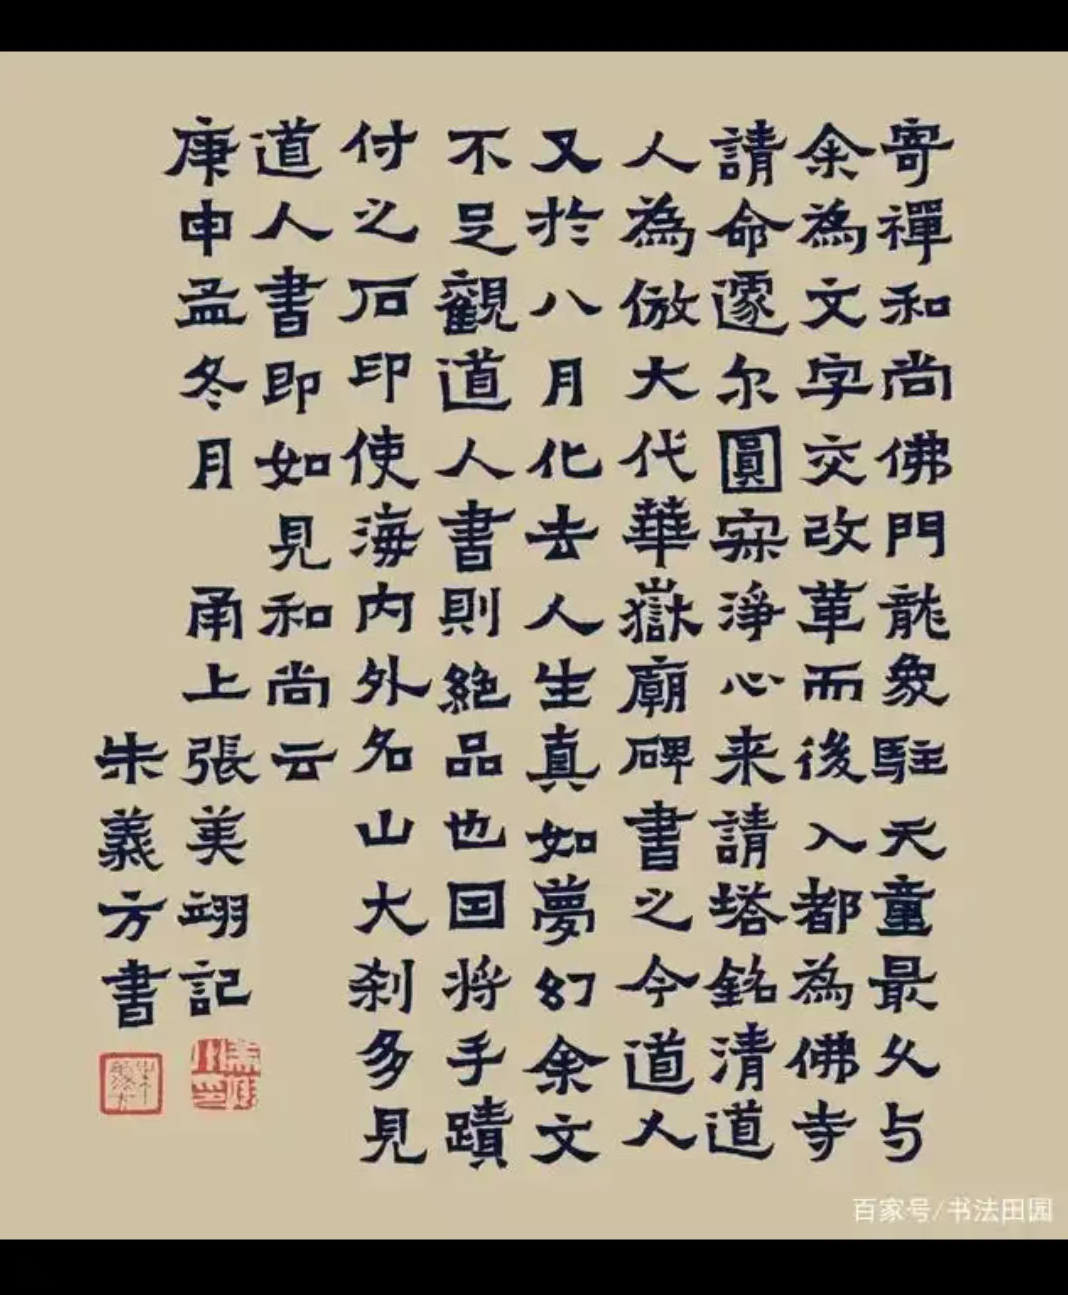 寄禪和尚佛門龍象駐天童最久与
余為文字交改革而後入都為佛寺
請命遽尔圓寂淨心来請塔銘清道
人為倣大代華嶽廟碑書之今道人
又於八月化去人生真如夢幻余文
不足觀道人書則絕品也回将手蹟
付之石印使海内外名山大刹多見
道人書即如見和尚云
庚申孟冬月 甬上張美翊記
朱義方書
百家号/书法田园